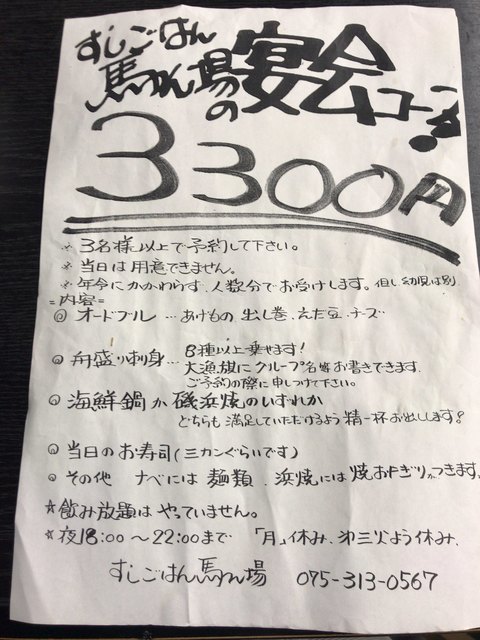 すしごはん
馬かん場の宴会コース!
3300円
※3名様以上で予約して下さい。
※当日は用意できません。
※年令にかかわらず、人数分でお受けします。但し幼児は別
=内容=
◎オードブル…あげもの 出し巻、えだ豆・チーズ
◎舟盛り刺身…8種以上乗せます!
大漁旗にグループ名等お書きできます。
ご予約の際に申しつけて下さい。
◎海鮮鍋か磯浜焼のいずれか
どちらも満足していただけるよう精一杯お出しします!
◎当日のお寿司(三カンぐらいです)
◎その他 ナベには麺類、浜焼には焼おにぎりがつきます。
☆飲み放題はやっていません。
☆夜18:00〜22:00まで 「月」休み、第三火よう休み、
すしごはん馬かん場 075-313-0567